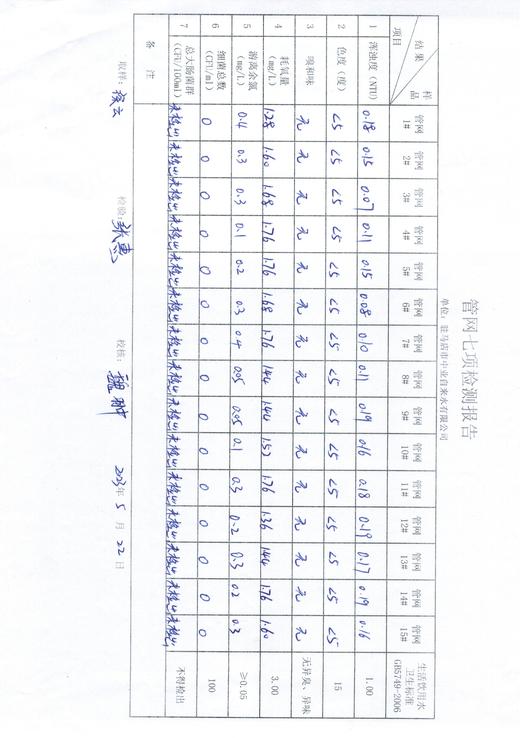 管网七项检测报告
单位：驻马店市中业自来水有限公司
样品 结果 项目 管网1# 管网2# 管网3# 管网4# 管网5# 管网6# 管网7# 管网8# 管网9# 管网10# 管网11# 管网12# 管网13# 管网14# 管网15# 生活饮用水卫生标准GB5749-2006
1 浑浊度（NTU） 0.18 0.15 0.07 0.11 0.15 0.08 0.10 0.11 0.19 0.16 0.18 0.19 0.17 0.19 0.16 1.00
2 色度（度） <5 <5 <5 <5 <5 <5 <5 <5 <5 <5 <5 <5 <5 <5 <5 15
3 嗅和味 无 无 无 无 无 无 无 无 无 无 无 无 无 无 无 无异臭、异味
4 耗氧量（mg/L） 1.28 1.60 1.68 1.76 1.76 1.68 1.76 1.44 1.44 1.52 1.76 1.36 1.44 1.76 1.60 3.00
5 游离余氯（mg/L） 0.4 0.3 0.3 0.1 0.2 0.3 0.4 0.05 0.05 0.1 0.3 0.2 0.3 0.2 0.3 ≥0.05
6 细菌总数（CFU/ml） 0 0 0 0 0 0 0 0 0 0 0 0 0 0 0 100
7 总大肠菌群（CFU/100ml） 未检出 未检出 未检出 未检出 未检出 未检出 未检出 未检出 未检出 未检出 未检出 未检出 未检出 未检出 未检出 不得检出
备 注
取样： 检验：张惠 校核： 2023年 5 月 22 日